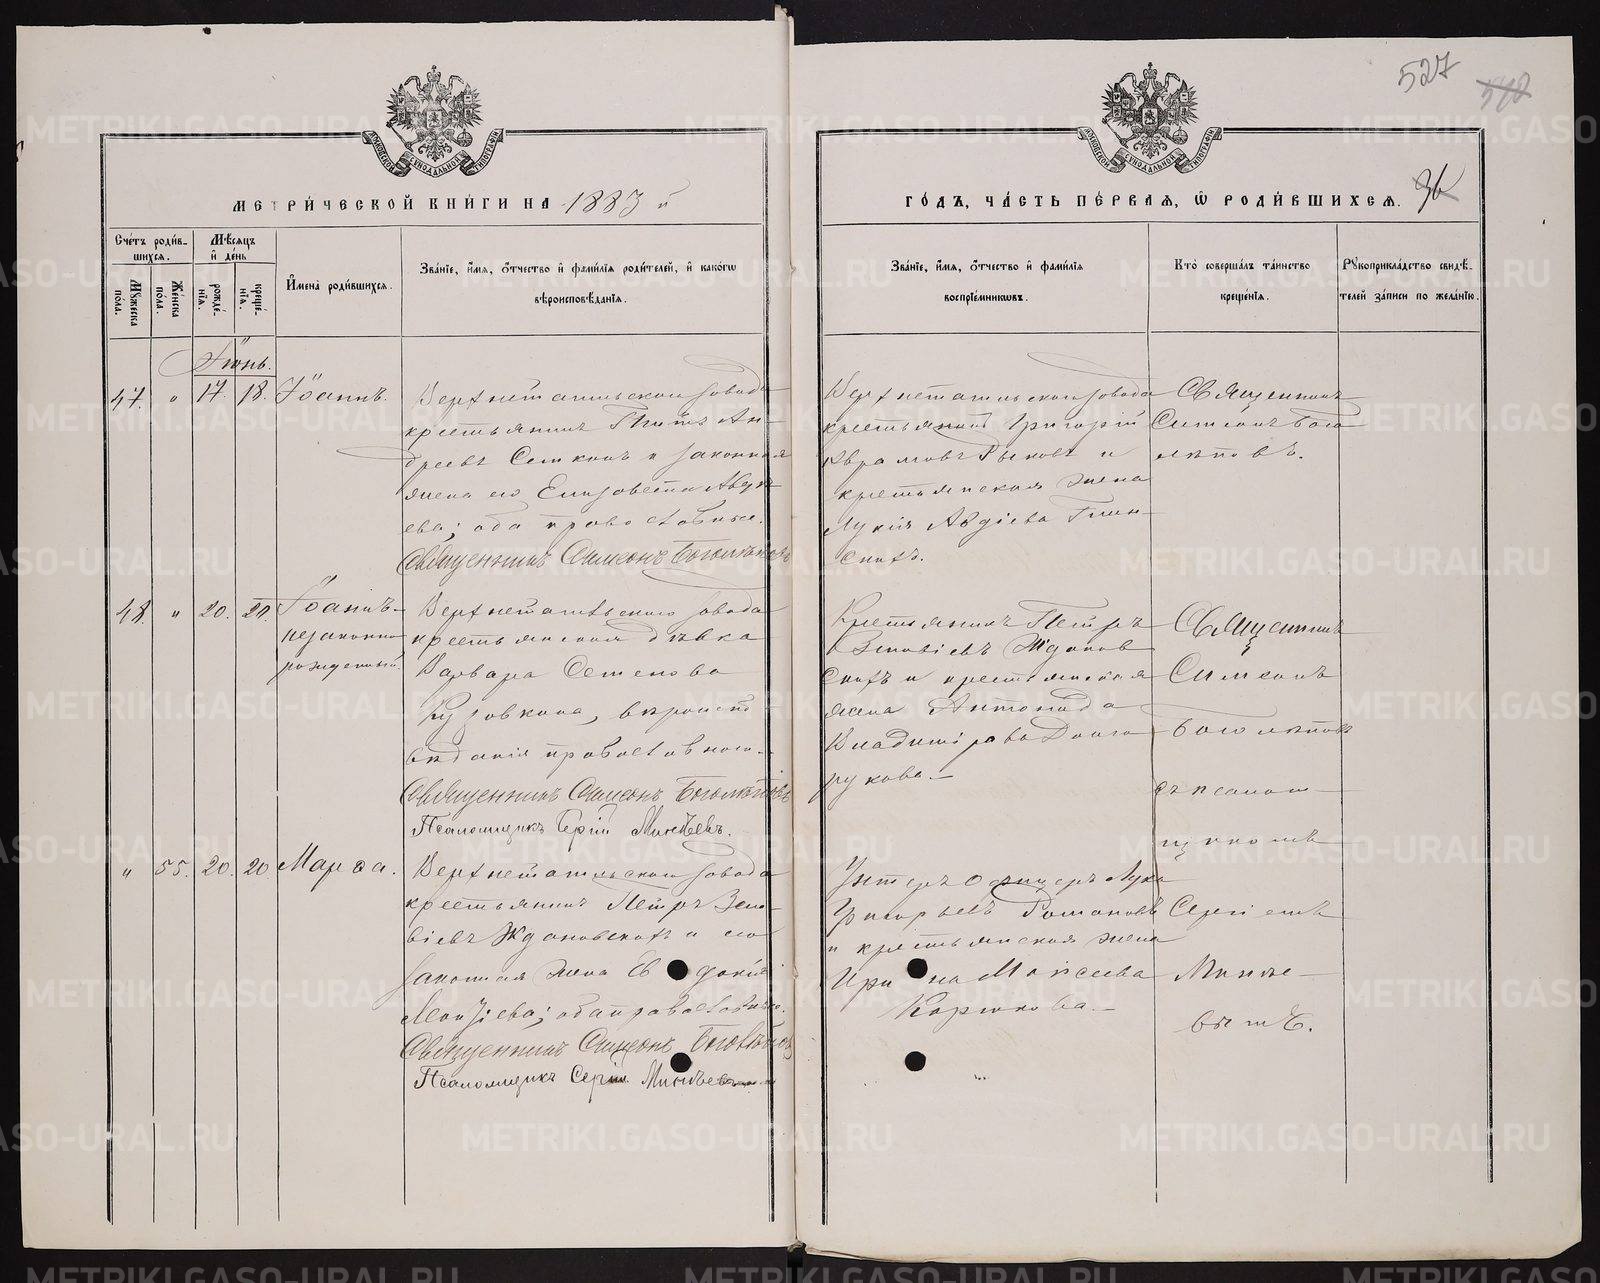 527
МЕТРИ́ЧЕСКОЙ КНИ́ГИ НА 1883 й
ГО́ДЪ, ЧА́СТЬ ПЕ́РВАЯ, Ѿ РОДИ́ВШИХСЯ.
Сче́тъ роди́в-
шихся.
Мꙋжеска по́ла.
Же́нска по́ла.
Мѣ́сяцъ и҆ де́нь
рожде́-
нїя.
креще́-
нїя.
И҆мена̀ роди́вшихся.
Зва́нїе, и҆́мя, ѻ҆́тчество и҆ фами́лїя роди́телей, и҆ како́гѡ
вѣроисповѣ́данїя.
Зва́нїе, и҆́мя, ѻ҆́тчество и҆ фами́лїя
воспрїе́мникѡвъ.
Кто̀ соверша́лъ та́инство
креще́нїя.
Рꙋкоприкла́дство свидѣ́-
телей за́писи по жела́нїю.
Іюнь.
47. " 17. 18. Іоаннъ.
Верхнетагильскаго завода
крестьянинъ Титъ Ан-
дреевъ Сенкинъ и законная
жена его Елизавета Аверк-
ева; оба православные.
Священникъ Симеонъ Боголѣповъ
Верхнетагильскаго завода
крестьянинъ Григорій
Аврамовъ Рыковъ и
крестьянская жена
Лукія Авдіева Глин-
скихъ.
Священникъ
Симеонъ Бого-
лѣповъ.
48. " 20. 20. Іоаннъ-
незаконно
рожденный
Верхнетагильскаго завода
крестьянская дѣвка
Варвара Семенова
Кузовкова, вѣроиспо-
вѣданія православнаго.
Священникъ Симеонъ Боголѣповъ
Псаломщикъ Сергій Минѣевъ.
Крестьянинъ Петръ
Зиновіевъ Ждановс-
скихъ и крестьянская
жена Антонида
Владимірова Долго-
рукова.
Священникъ
Симеонъ
Боголѣповъ
съ псалом-
щикомъ
Сергіемъ
Минѣе-
вымъ.
" 55. 20. 20 Марѳа.
Верхнетагильскаго завода
крестьянинъ Петръ Зино-
віевъ Ждановскихъ и его
законная жена Евдокія
Моисіева; оба православные.
Священникъ Симеонъ Боголѣповъ
Псаломщикъ Сергій Минѣевъ
Унтеръ офицеръ Лука
Григорьевъ Романовъ
и крестьянская жена
Ирина Моисеева
Корюкова.
METRIKI.GASO-URAL.RU